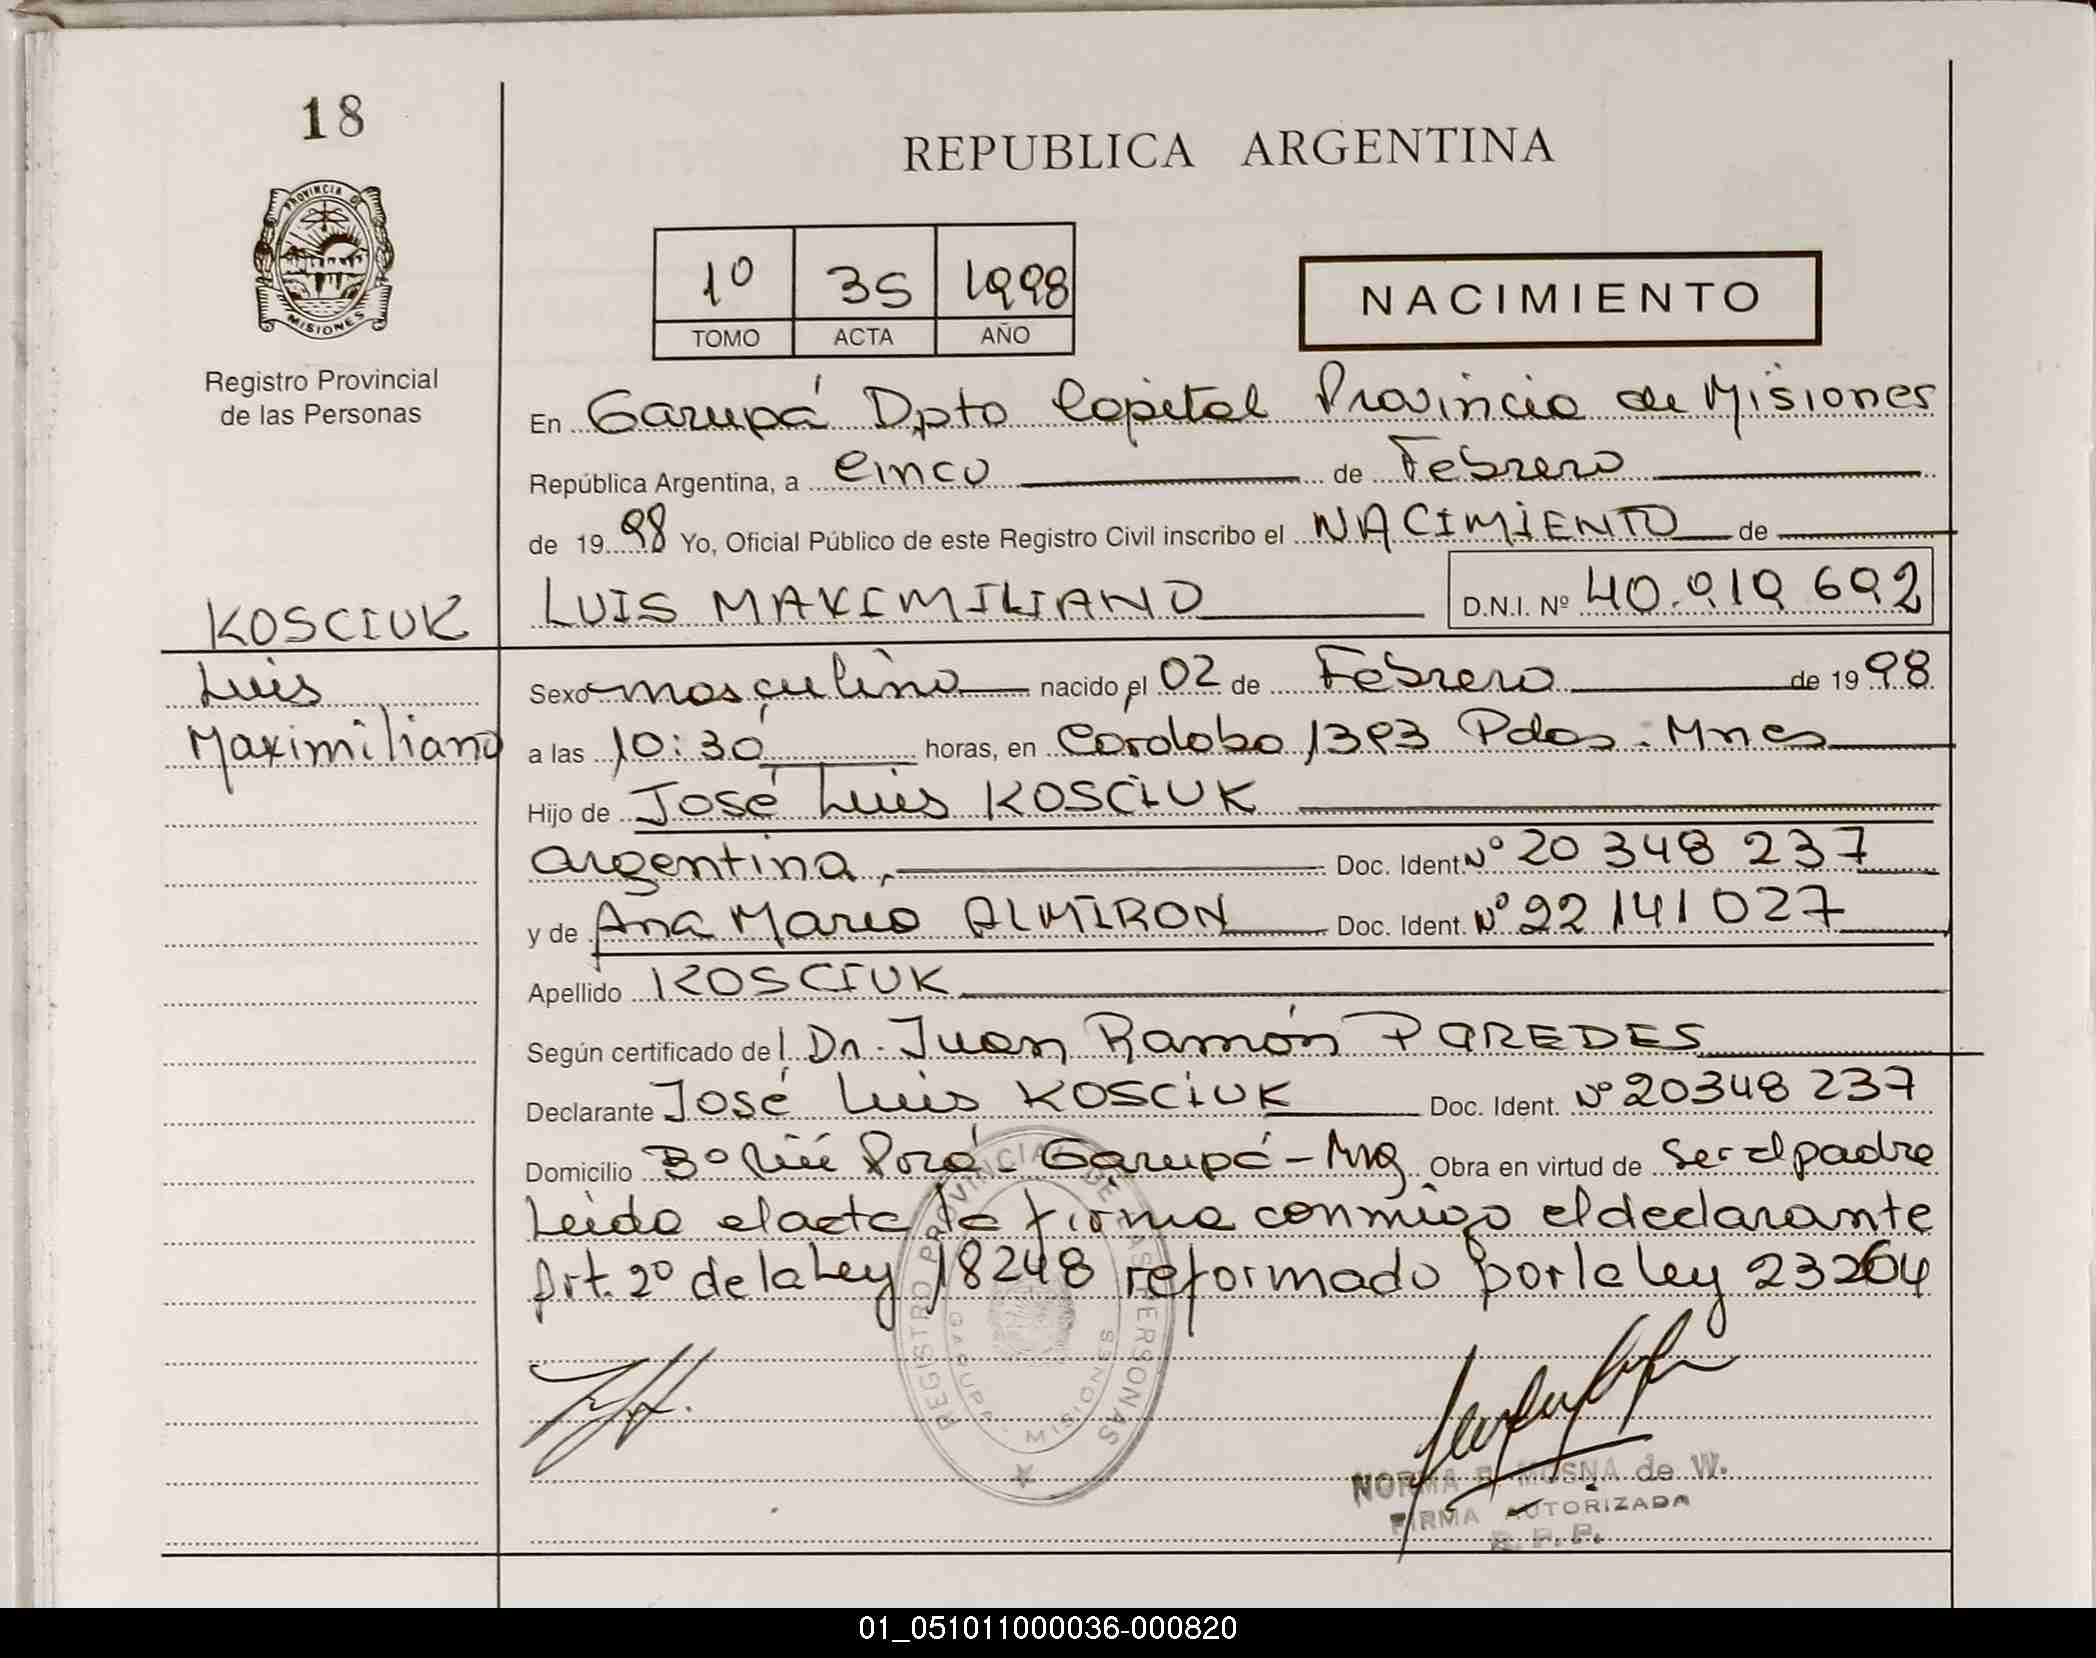 18
REPUBLICA ARGENTINA
PROVINCIA DE
MISIONES
Registro Provincial
de las Personas
1º 35 1998
TOMO ACTA AÑO
NACIMIENTO
En Garupá Dpto Capital Provincia de Misiones
República Argentina, a Cinco de Febrero
de 1998 Yo, Oficial Público de este Registro Civil inscribo el NACIMIENTO de
KOSCIUK
Luis
Maximiliano
LUIS MAXIMILIANO D.N.I. Nº 40.919 692
Sexo masculino nacido el 02 de Febrero de 1998
a las 10:30 horas, en Cordoba 1393 Pdas. Mnes
Hijo de José Luis KOSCIUK
argentina, Doc. Ident. Nº 20 348 237
y de Ana Maria ALMIRON Doc. Ident. Nº 22 141 027
Apellido KOSCIUK
Según certificado del Dr. Juan Ramón PAREDES
Declarante José Luis KOSCIUK Doc. Ident. Nº 20348 237
Domicilio Bº Porá - Garupá - Mns Obra en virtud de Ser el padre
Leida el acta la firma conmigo el declarante
Art. 2º de la Ley 18248 reformado por la ley 23264
REGISTRO PROVINCIAL DE LAS PERSONAS
GARUPA - MISIONES
NORMA MOSNA de W.
FIRMA AUTORIZADA
R.P.P.
01_051011000036-000820